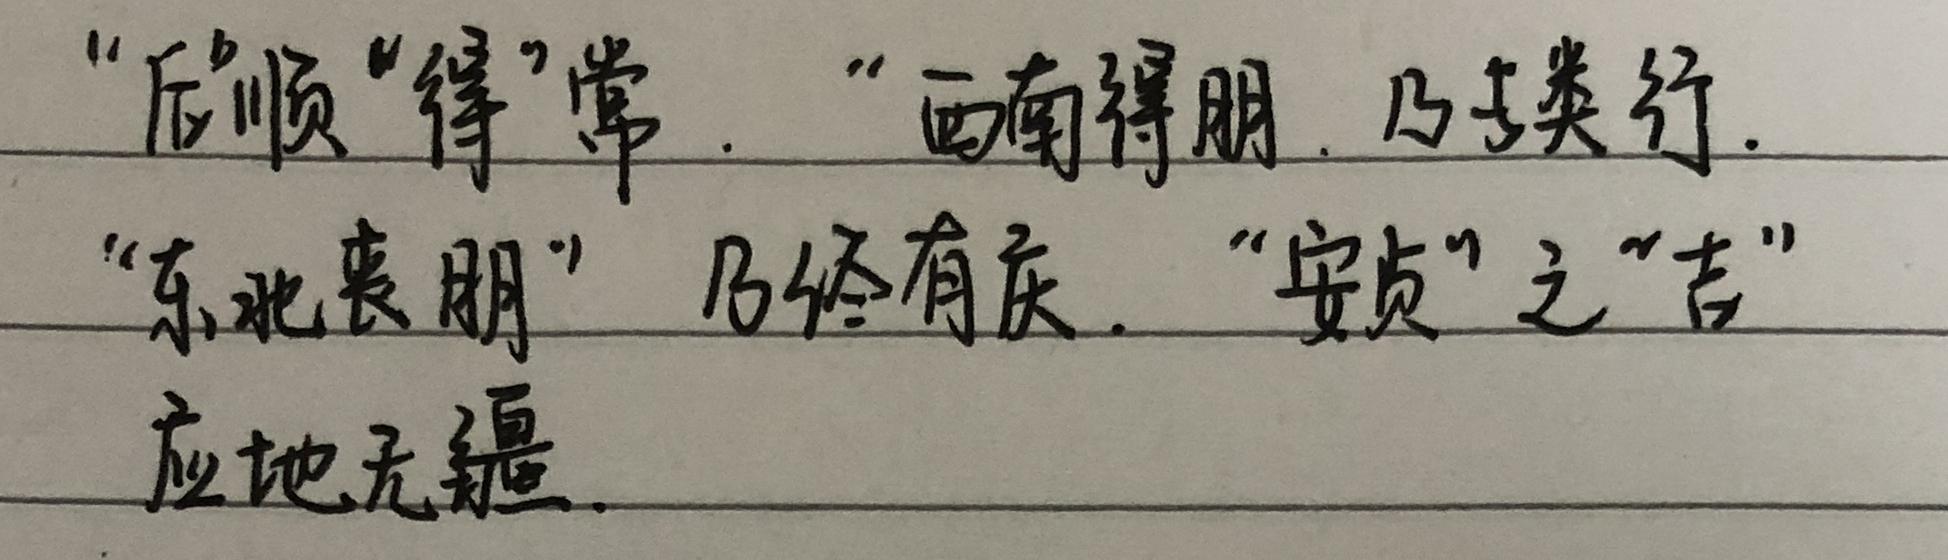 “后”顺“得”常. “西南得朋. 乃与类行.
“东北丧朋” 乃终有庆. “安贞”之“吉”
应地无疆.